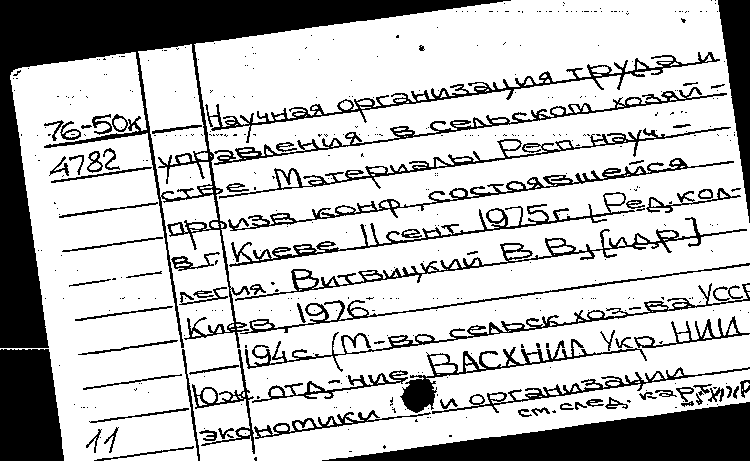 76-50к
4782
Научная организация труда и
управления в сельском хозяй-
стве. Материалы Респ. науч.-
произв конф., состоявшейся
в г. Киеве 11 сент. 1975 г. [Ред. кол-
легия: Витвицкий В. В., [и др.]
Киев, 1976.
194 с. (М-во сельск хоз-ва УССР
Юж. отд-ние ВАСХНИЛ Укр. НИИ
экономики и организации
см. след. карт
11